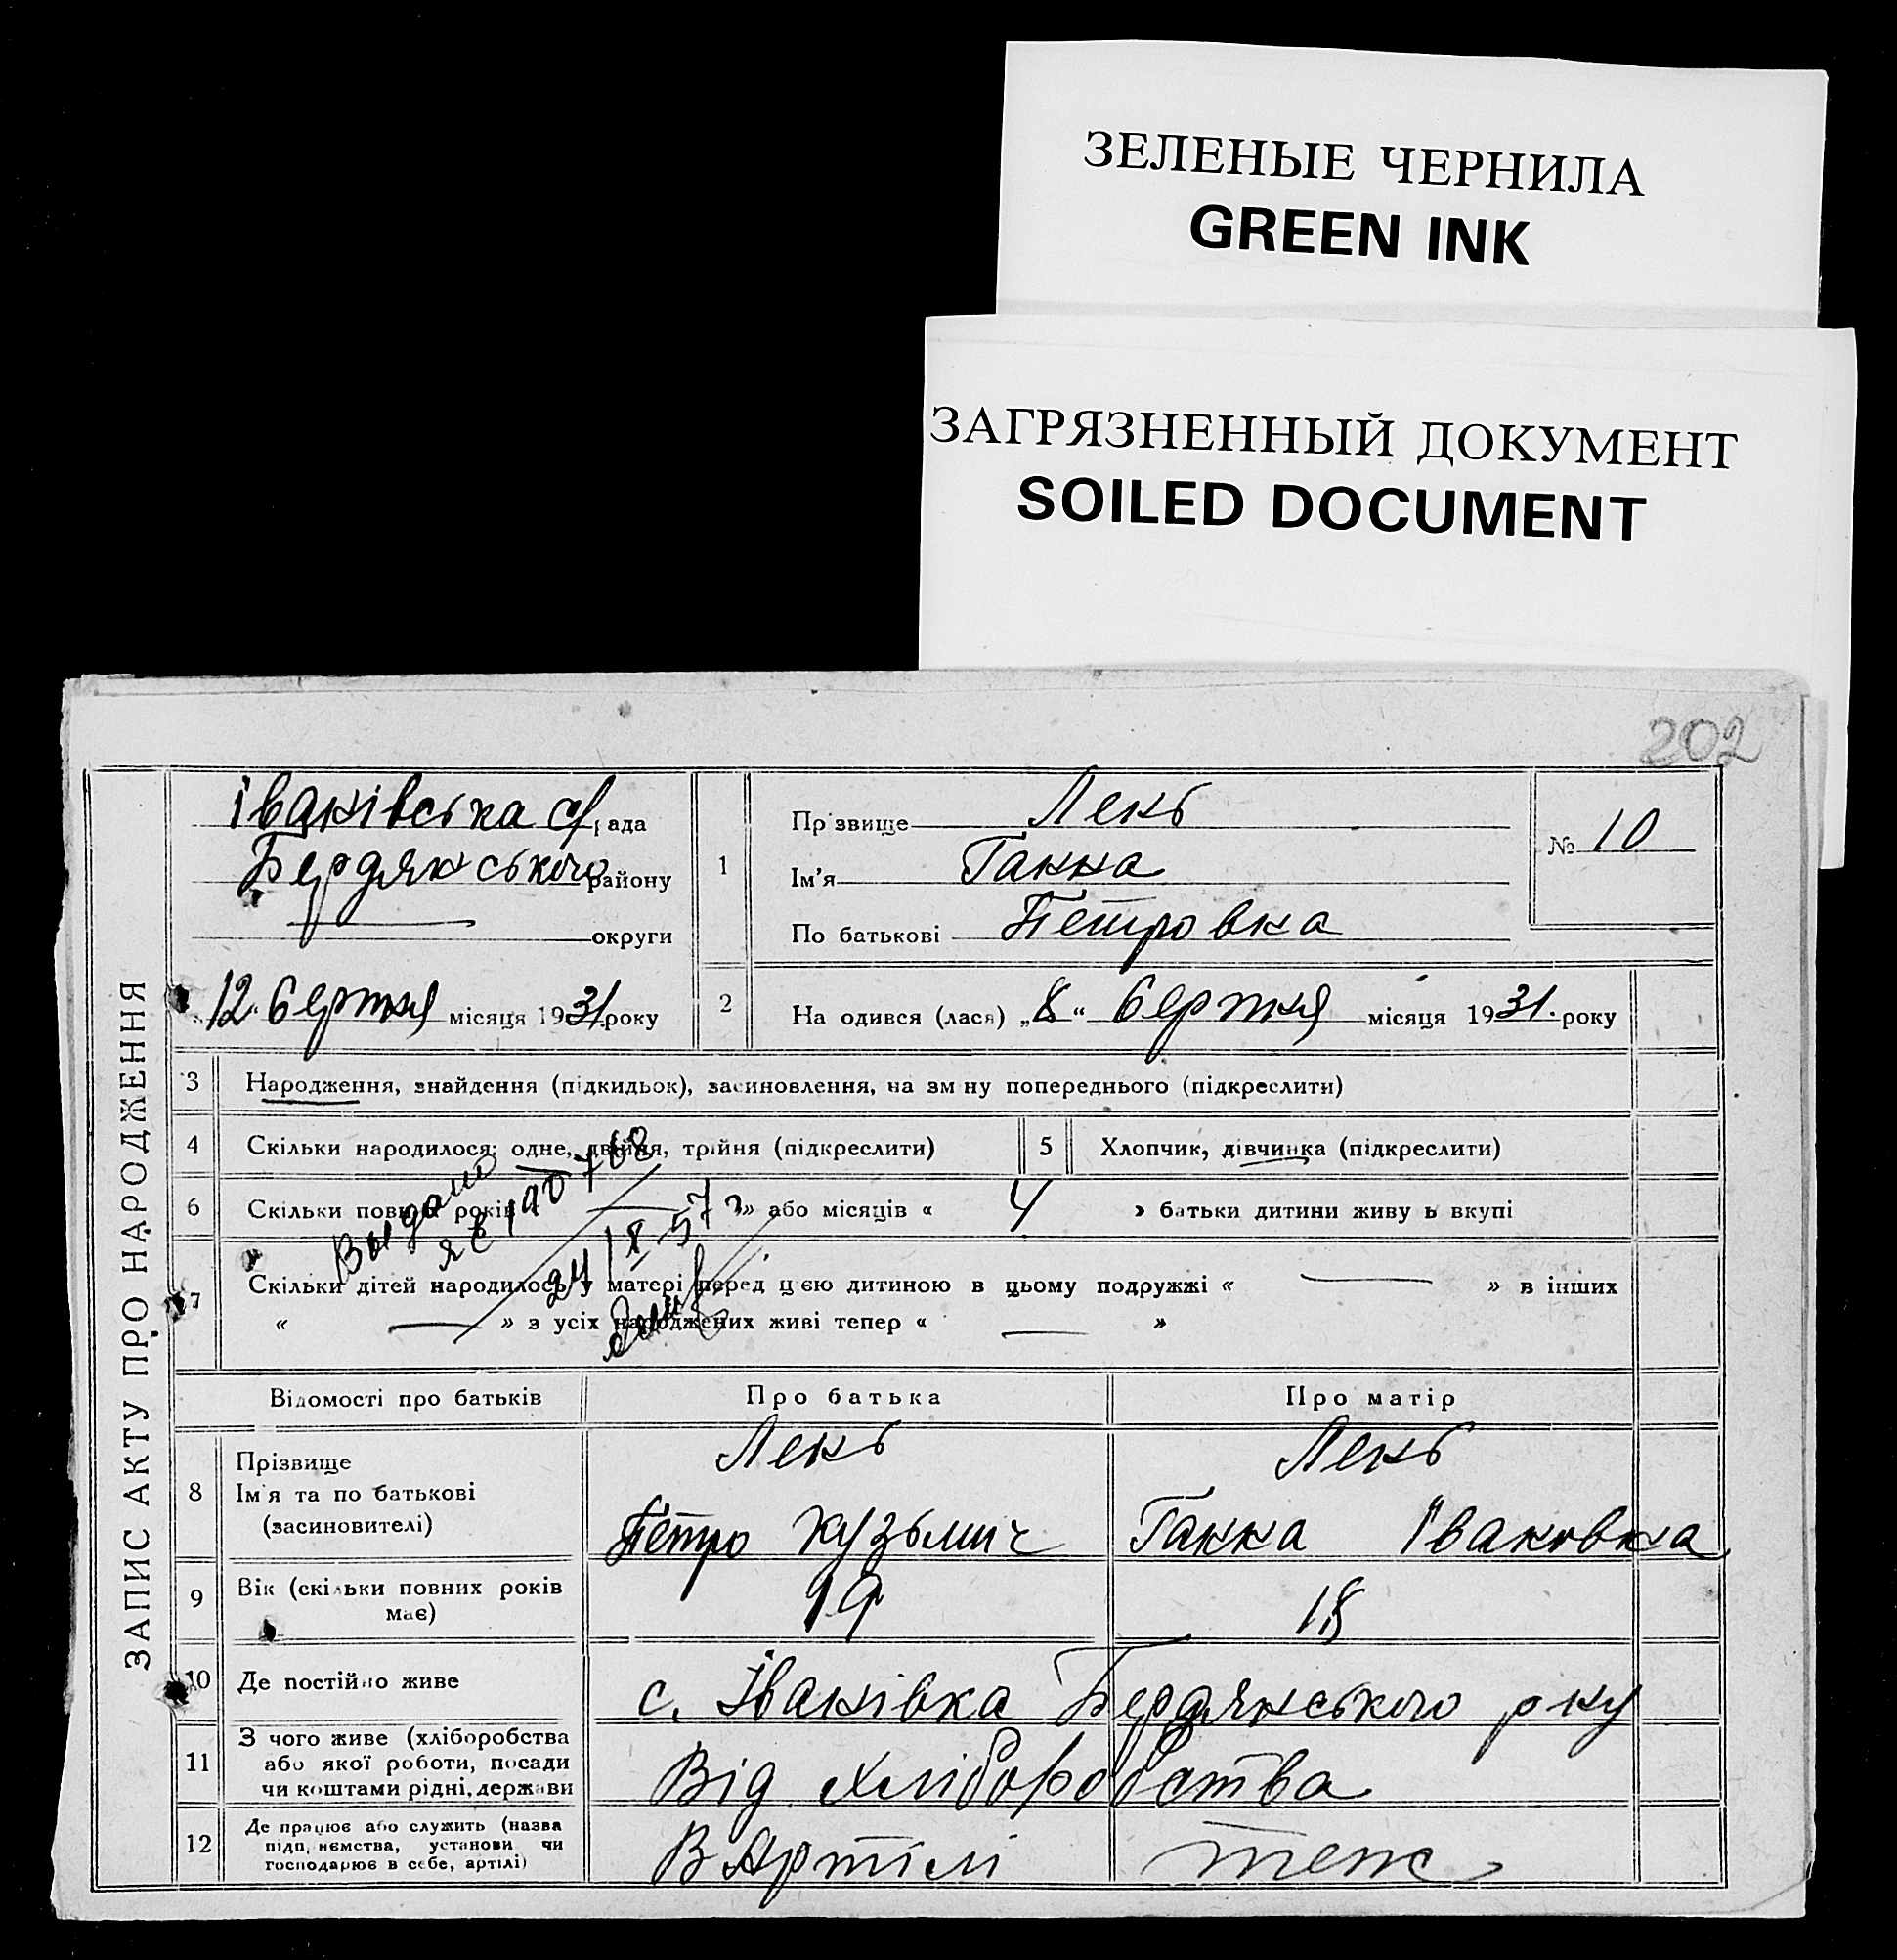 ЗЕЛЕНЫЕ ЧЕРНИЛА
GREEN INK
ЗАГРЯЗНЕННЫЙ ДОКУМЕНТ
SOILED DOCUMENT
202
ЗАПИС АКТУ ПРО НАРОДЖЕННЯ
Іванівська с/рада
Бердянського району
округи
12 Серпня місяця 1931 року
1
Прізвище Лень
Ім'я Ганна
По батькові Петровна
№ 10
2
На одився (лася) „8“ Серпня місяця 1931. року
3 Народження, знайдення (підкидьок), засиновлення, на зм ну попереднього (підкреслити)
4 Скільки народилося: одне, двійня, трійня (підкреслити)
5 Хлопчик, дівчинка (підкреслити)
6 Скільки повних років — » або місяців « 4 » батьки дитини живу ь вкупі
Выдано
190768
24/X-57 г
7 Скільки дітей народилось у матері перед цією дитиною в цьому подружжі « — » в інших
« — » з усіх народжених живі тепер « — »
Відомості про батьків Про батька Про матір
8 Прізвище
Ім'я та по батькові
(засиновителі)
Лень
Петро Кузьмич
Лень
Ганна Івановна
9 Вік (скільки повних років
має)
19
18
10 Де постійно живе
с. Іванівка Бердянського р-ну
11 З чого живе (хліборобства
або якої роботи, посади
чи коштами рідні, держави
Від хліборобства
12 Де працює або служить (назва
підп, немства, установи чи
господарює в себе, артілі)
В Артілі теж